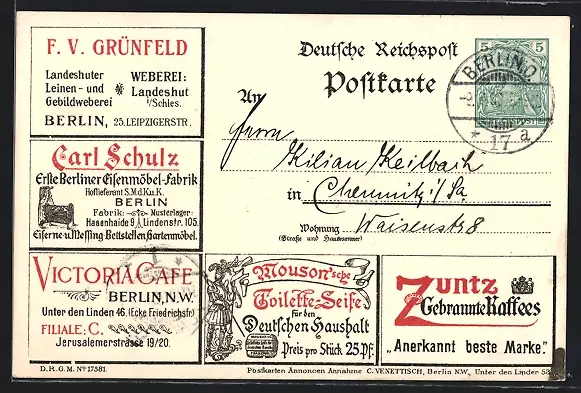 F. V. GRÜNFELD
Landeshuter
Leinen- und
Gebildweberei
WEBEREI:
Landeshut
i/Schles.
BERLIN, 25. LEIPZIGERSTR.
Carl Schulz
Erste Berliner Eisenmöbel-Fabrik
Hoflieferant S.M.d.K.u.K.
BERLIN
Fabrik: Musterlager:
Hasenhaide 9 Lindenstr. 105.
Eiserne u. Messing-Bettstellen, Gartenmöbel.
VICTORIA CAFE
BERLIN, N.W.
Unter den Linden 46. (Ecke Friedrichstr)
FILIALE: C.
Jerusalemerstrasse 19/20.
Deutsche Reichspost
Postkarte
5 5
BERLIN, O.
* 17 a
An
Herrn Kilian Keilbach
in Chemnitz i/Sa.
Wohnung Waisenstr 8
(Straße und Hausnummer)
Mouson'sche
Toilette-Seife
für den
Deutschen Haushalt
Preis pro Stück 25.Pf.
Zuntz
Gebrannte Kaffees
„Anerkannt beste Marke."
D. R. G. M. Nº 17581.
Postkarten Annoncen Annahme C. VENETTISCH, Berlin N.W., Unter den Linden 53.